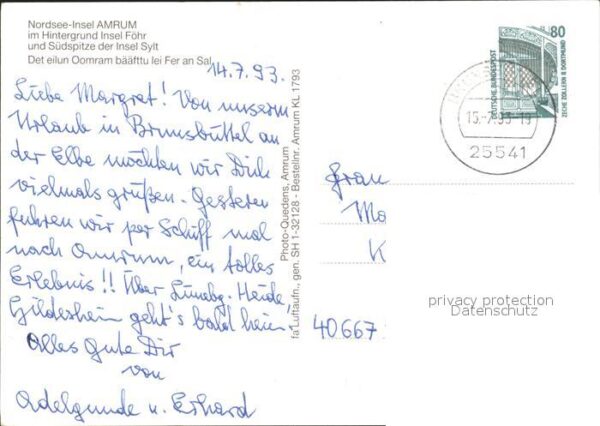 Nordsee-Insel AMRUM
im Hintergrund Insel Föhr
und Südspitze der Insel Sylt
Det eilun Oomram bääfttu lei Fer an Sal
14.7.93.
Liebe Margret! Von unserm
Urlaub in Brunsbüttel an
der Elbe möchten wir Dich
vielmals grüßen. Gestern
fuhren wir per Schiff mal
nach Amrum, ein tolles
Erlebnis!! Über Lünebg. Heide,
Hildesheim geht's bald heim.
Alles Gute Dir
von
Adelgunde u. Erhard
Photo-Quedens, Amrum
fa Luftaufn., gen. SH 1-32128 - Bestellnr. Amrum KL 1793
80
DEUTSCHE BUNDESPOST
ZECHE ZOLLERN II DORTMUND
15.-7.93-19
25541
Frau
Ma
K
40667
privacy protection
Datenschutz